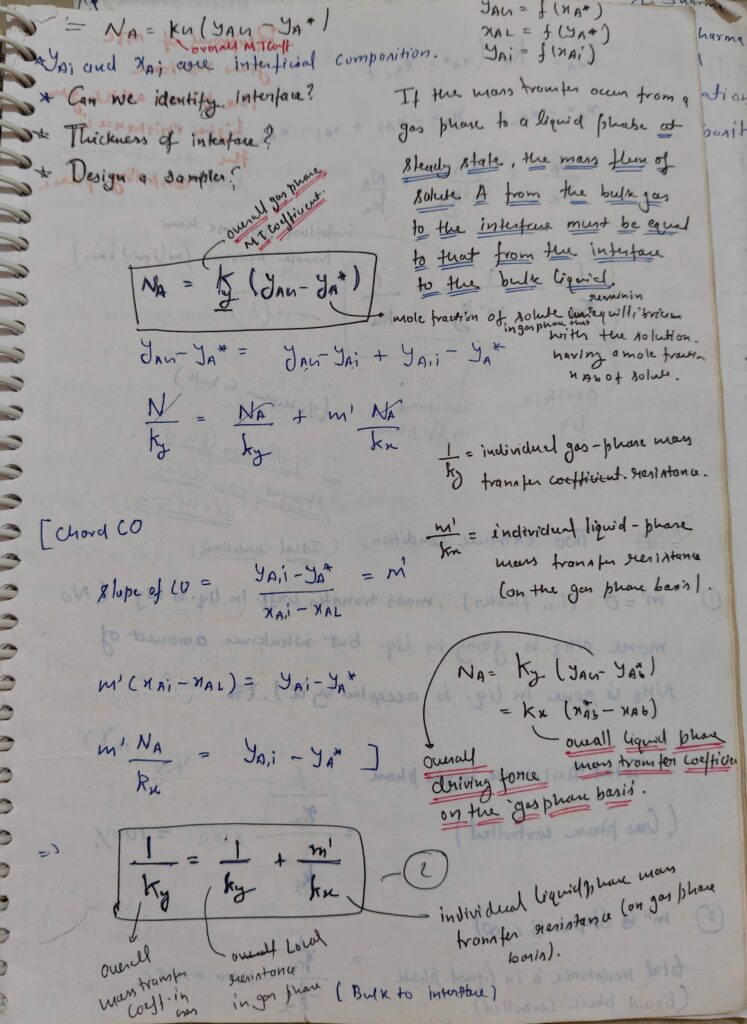 = NA = ky (yAG - yA*)
overall MTCoff
yAG = f(xA*)
xAL = f(yA*)
yAi = f(xAi)
* yAi and xAi are interficial composition.
* Can we identify interface?
* Thickness of interface?
* Design a sampler?
If the mass transfer occur from a
gas phase to a liquid phase at
steady state, the mass flux of
solute A from the bulk gas
to the interface must be equal
to that from the interface
to the bulk liquid.
overall gas phase
MTCoefficient.
NA = Ky (yAG - yA*)
mole fraction of solute
in gas phase that
remain in
equillibrium
with the solution.
having a mole fraction
xAb of solute.
yAG - yA* = yAG - yAi + yA,i - yA*
N/Ky = NA/ky + m' NA/kx
1/ky = individual gas-phase mass
transfer coefficient. resistance.
m'/kx = individual liquid-phase
mass transfer resistance
(on the gas phase basis).
[Chord CO
Slope of CO = (yA,i - yA*)/(xA,i - xAL) = m'
m'(xAi - xAL) = yAi - yA*
m' NA/kx = yA,i - yA* ]
NA = Ky (yAG - yAb*)
= Kx (xAb* - xAb)
overall liquid phase
mass transfer coefficien
overall
driving force
on the 'gas phase basis'.
=> 1/Ky = 1/ky + m'/kx - (2)
individual liquid phase mass
transfer resistance (on gas phase
basis).
overall
mass transfer
coeff. in
gas
overall Local
resistance
in gas phase (Bulk to interface)